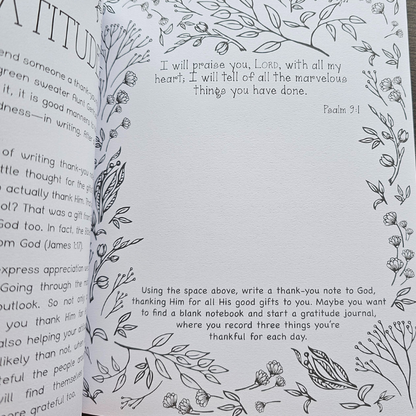 ATITUD
end someone a thank-
green sweater Aunt
it, it is good manners
dness—in writing.
of writing thank-you
ttle thought for the g
actually thank Him. Th
ol? That was a gift from
God too. In fact, the B
om God (James 1:17).
xpress appreciation
Going through the m
outlook. So not only
you thank Him for
also helping your
likely than not, whe
teful the people aro
will find themselves
more grateful too.
I will praise you, LORD, with all my
heart; I will tell of all the marvelous
things you have done.
Psalm 9:1
Using the space above, write a thank-you note to God,
thanking Him for all His good gifts to you. Maybe you want
to find a blank notebook and start a gratitude journal,
where you record three things you're
thankful for each day.